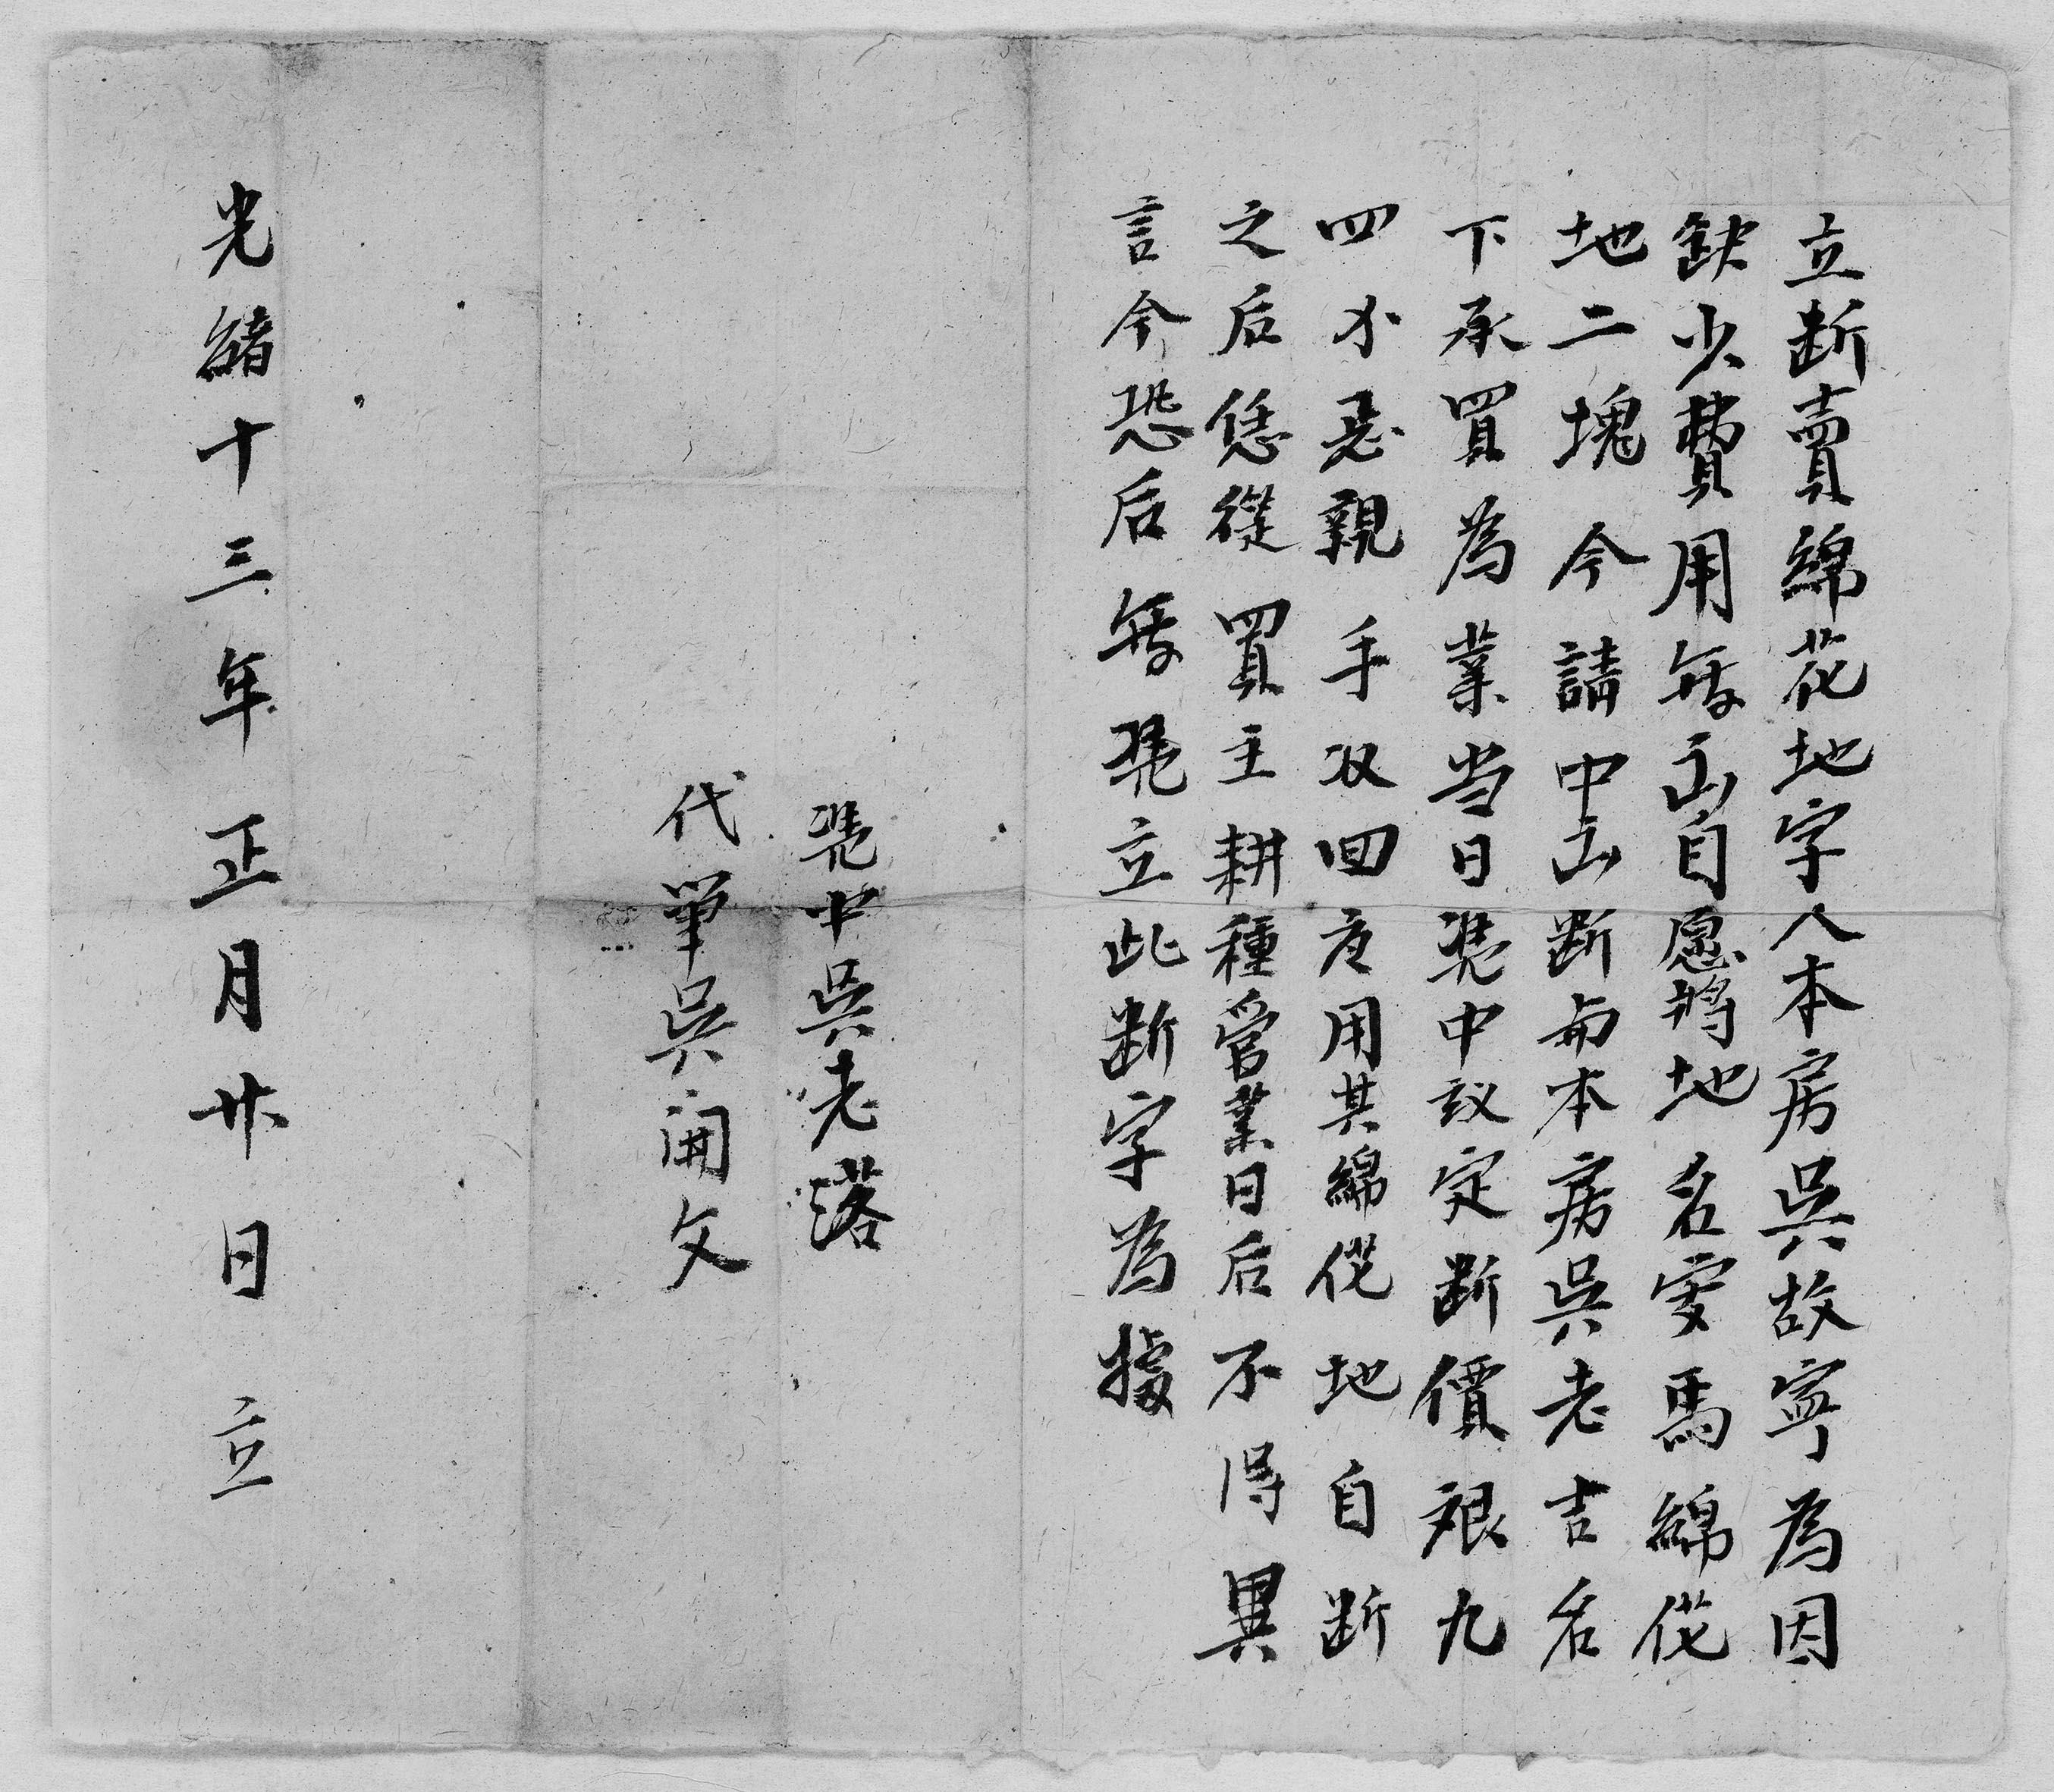 立断賣綿花地字人本房吳故寜為因
缺少費用無出自愿將地名雯馬綿花
地二塊今請中出断與本房吳老吉名
下承買為業当日凴中议定断價艮九
四小是親手收回应用其綿花地自断
之后恁從買主耕種管業日后不得異
言今恐后無凴立此断字為據
凴中吳老落
代筆吳開文
光緒十三年正月廿日立